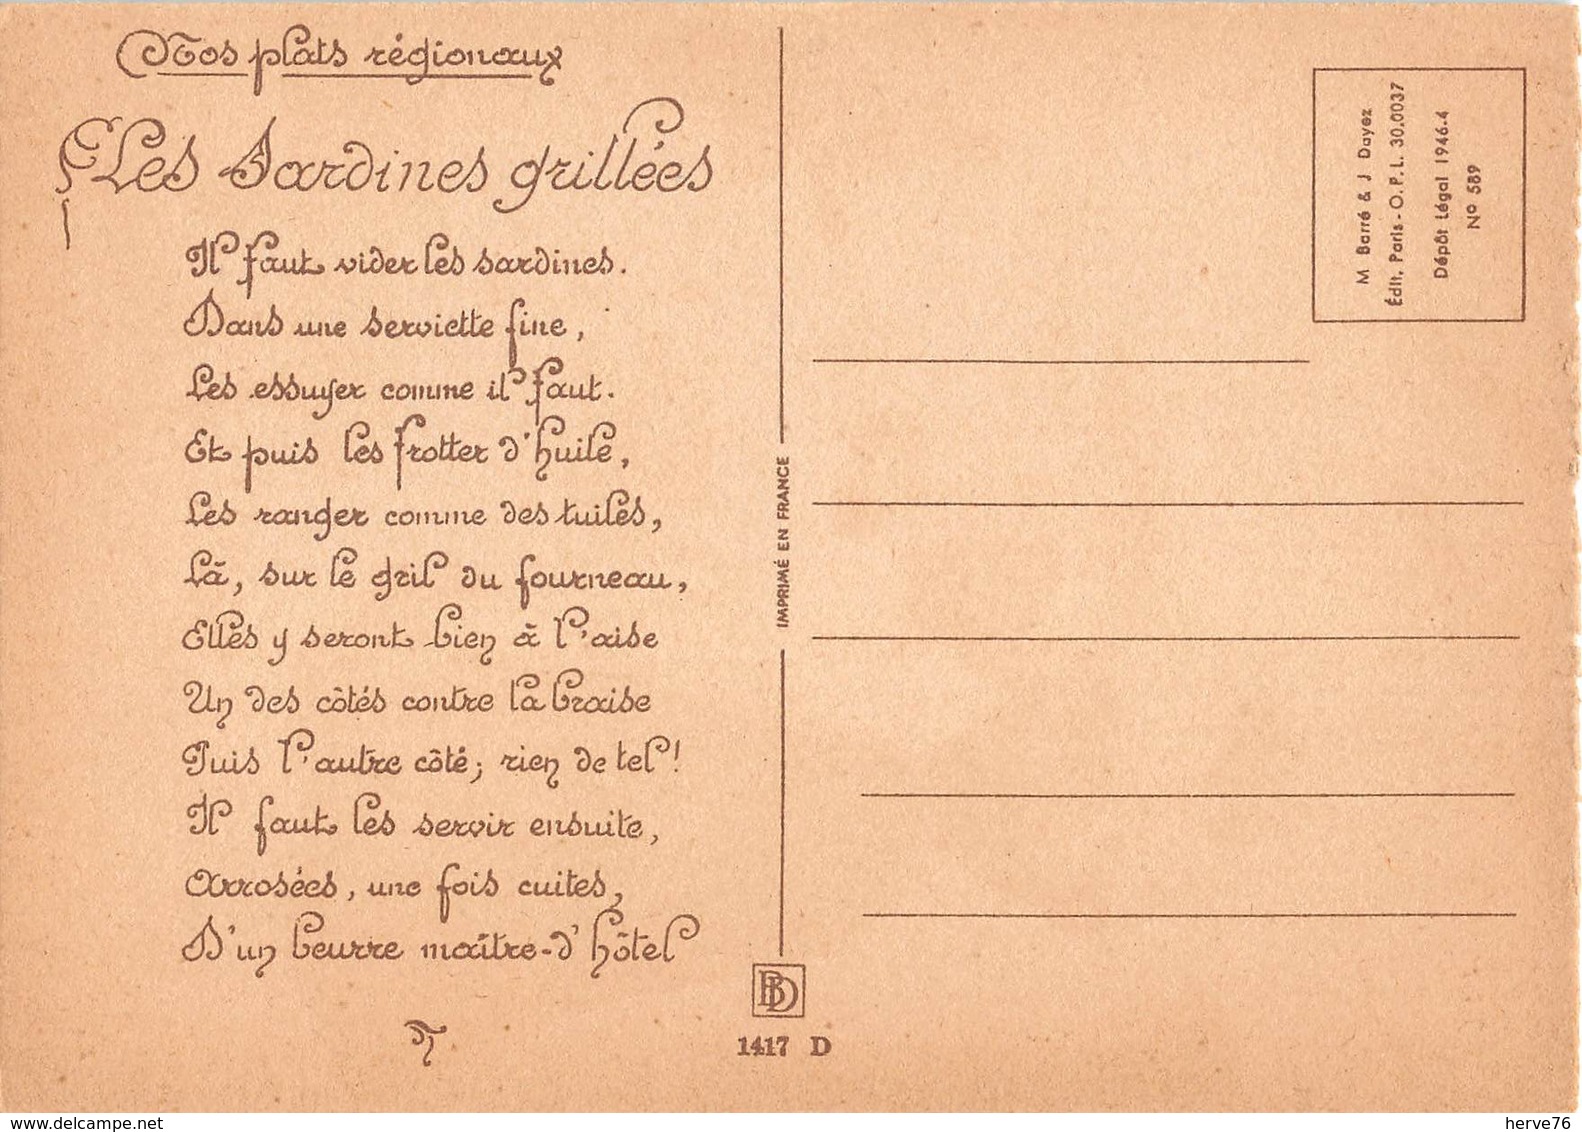 Nos plats régionaux
Les Sardines grillées
Il faut vider les sardines.
Dans une serviette fine,
Les essuyer comme il faut.
Et puis les frotter d'huile,
Les ranger comme des tuiles,
Là, sur le gril du fourneau,
Elles y seront bien à l'aise
Un des côtés contre la braise
Puis l'autre côté; rien de tel!
Il faut les servir ensuite,
Arrosées, une fois cuites,
D'un beurre maître-d'hôtel
IMPRIMÉ EN FRANCE
BD
1417 D
M Barré & J Dayez
Édit. Paris - O.P.L. 30.0037
Dépôt Légal 1946-4
Nº 589
www.delcampe.net
herve76